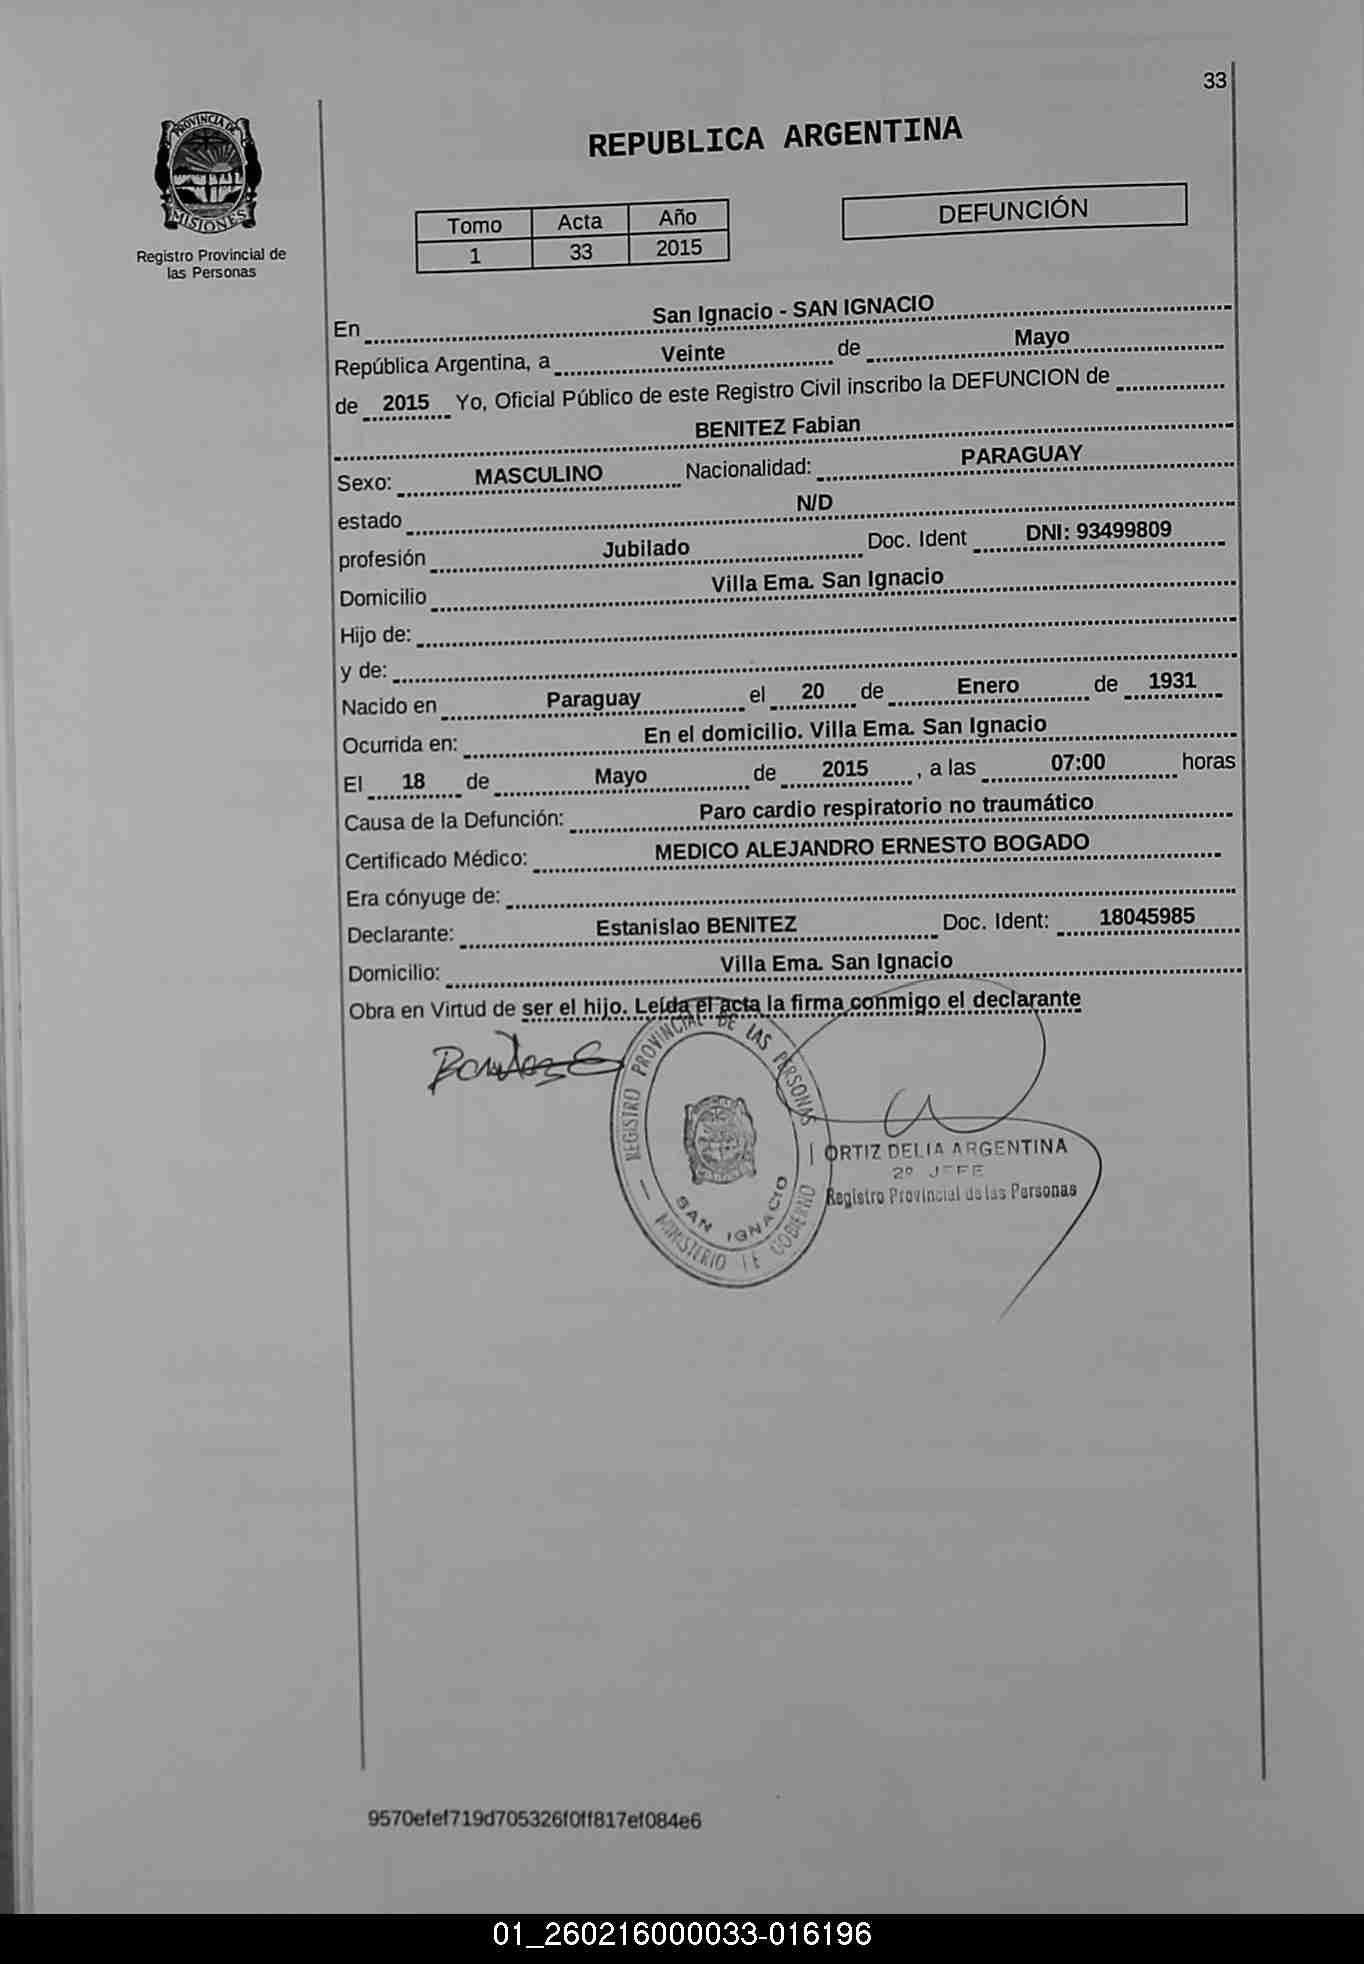 33
PROVINCIA DE
MISIONES
Registro Provincial de
las Personas
REPUBLICA ARGENTINA
Tomo Acta Año
1 33 2015
DEFUNCIÓN
En San Ignacio - SAN IGNACIO
República Argentina, a Veinte de Mayo
de 2015 Yo, Oficial Público de este Registro Civil inscribo la DEFUNCION de
BENITEZ Fabian
Sexo: MASCULINO Nacionalidad: PARAGUAY
estado N/D
profesión Jubilado Doc. Ident DNI: 93499809
Domicilio Villa Ema. San Ignacio
Hijo de:
y de:
Nacido en Paraguay el 20 de Enero de 1931
Ocurrida en: En el domicilio. Villa Ema. San Ignacio
El 18 de Mayo de 2015 , a las 07:00 horas
Causa de la Defunción: Paro cardio respiratorio no traumático
Certificado Médico: MEDICO ALEJANDRO ERNESTO BOGADO
Era cónyuge de:
Declarante: Estanislao BENITEZ Doc. Ident: 18045985
Domicilio: Villa Ema. San Ignacio
Obra en Virtud de ser el hijo. Leída el acta la firma conmigo el declarante
REGISTRO PROVINCIAL DE LAS PERSONAS
SAN IGNACIO
MINISTERIO DE GOBIERNO
ORTIZ DELIA ARGENTINA
2º JEFE
Registro Provincial de las Personas
9570efef719d705326f0ff817ef084e6
01_260216000033-016196